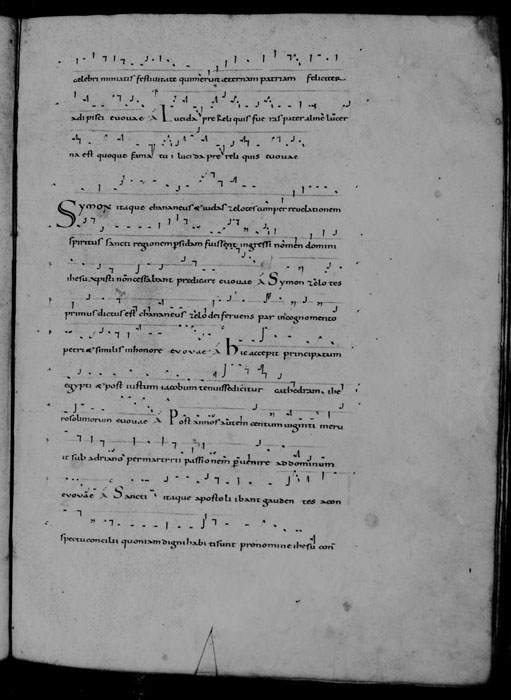 celebri mimatis festiuitate qui merunt aeternam patriam feliciter
adipisci euouae A Lucida pre reliquis fue ras pater alme lucer
na est quoque fama tu i lucida pre reliquis euouae
Symon itaque chananeus & iudas zelotes cum per reuelationem
spiritus sancti regionem psidam fuissent ingressi nomen domini
ihesu xpisti non cessabant predicare euouae A Symon zelo tes
primus dictus est chananeus zelo dei feruens par in cognomento
petri & similis inhonore euouae A hic accepit principatum
egypti & post iustum iacobum tenuisse dicitur cathedram ihe
rosolimorum euouae A Post annos autem centum uiginti meru
it sub adriano per martyrii passionem peruenire ad dominum
euouae A Sancti itaque apostoli ibant gauden tes a con
spectu concilii quoniam digni habi ti sunt pro nomine ihesu con